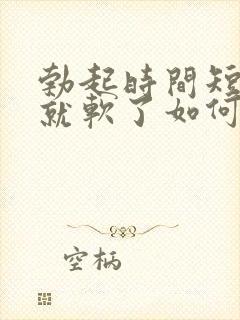 勃起時間短
就軟了如何
空柄